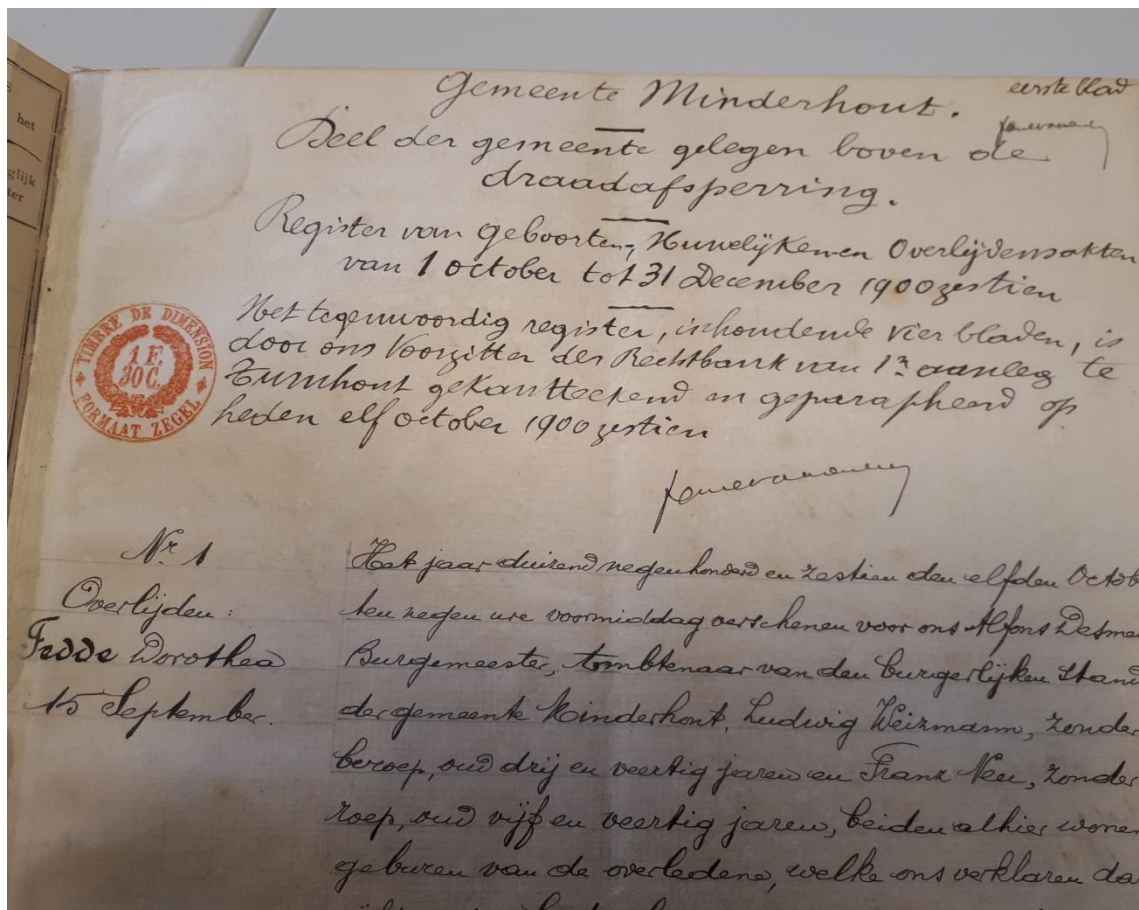 het
glijk
ter
Gemeente Minderhout.
eerste blad
Deel der gemeente gelegen boven de
draadafsperring.
Register van geboorten, Huwelijken en Overlijdensakten
van 1 october tot 31 December 1900 zestien
Het tegenwoordig register, inhoudende vier bladen, is
door ons Voorzitter der Rechtbank van 1n aanleg te
Turnhout gekantteekend en geparapheerd op
heden elf october 1900 zestien
TIMBRE DE DIMENSION
1 F.
30 C.
FORMAAT ZEGEL
Nr. 1
Overlijden:
Fedde Dorothea
15 September.
Het jaar duizend negenhonderd en zestien den elfden Octob
ten negen ure voormiddag verschenen voor ons Alfons Desme
Burgemeester, Ambtenaar van den burgerlijken Stand
der gemeente Minderhout, Ludwig Weizmann, zonder
beroep, oud drij en veertig jaren en Franz Neu, zonder
roep, oud vijf en veertig jaren, beiden alhier wone
geburen van de overledene, welke ons verklaren da